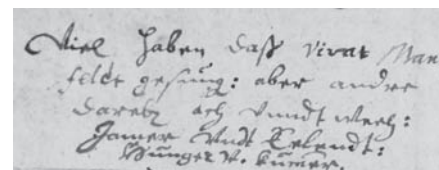 Viel haben daß vivat Man
feldt gesung: aber andre
darob ach vnndt weeh:
Jamer vndt Eelendt:
Hunger v. kumer.